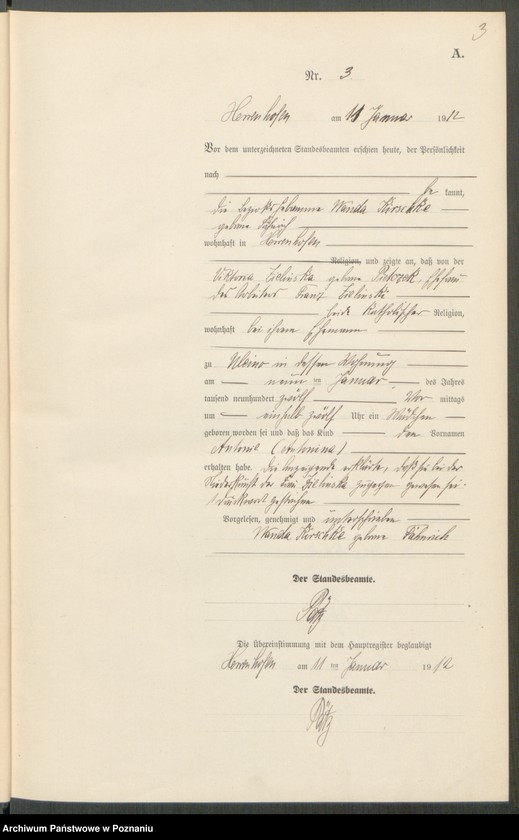 3
A.
Nr. 3.
Herrenhofen am 11 Januar 1912
Vor dem unterzeichneten Standesbeamten erschien heute, der Persönlichkeit
nach
be kannt,
die Bezirkshebamme Wanda Kirschke
geborne Fähnrich
wohnhaft in Herrenhofen
Religion, und zeigte an, daß von der
Viktoria Zielinska geborne Ehefrau
des Arbeiters Franz Zielinski
beide katholischer Religion,
wohnhaft bei ihrem Ehemann
zu in dessen Wohnung
am neun ten Januar des Jahres
tausend neunhundert zwölf Vor mittags
um einhalb zwölf Uhr ein Mädchen
geboren worden sei und daß das Kind den Vornamen
Antonie (Antonina)
erhalten habe. Die Anzeigende erklärte, daß sie bei der
Niederkunft der Frau Zielinska zugegen gewesen sei.
1 Druckwort gestrichen
Vorgelesen, genehmigt und unterschrieben
Wanda Kirschke geborne Fähnrich
Der Standesbeamte.
Die Übereinstimmung mit dem Hauptregister beglaubigt
Herrenhofen am 11 ten Januar 1912
Der Standesbeamte.
Archiwum Państwowe w Poznaniu